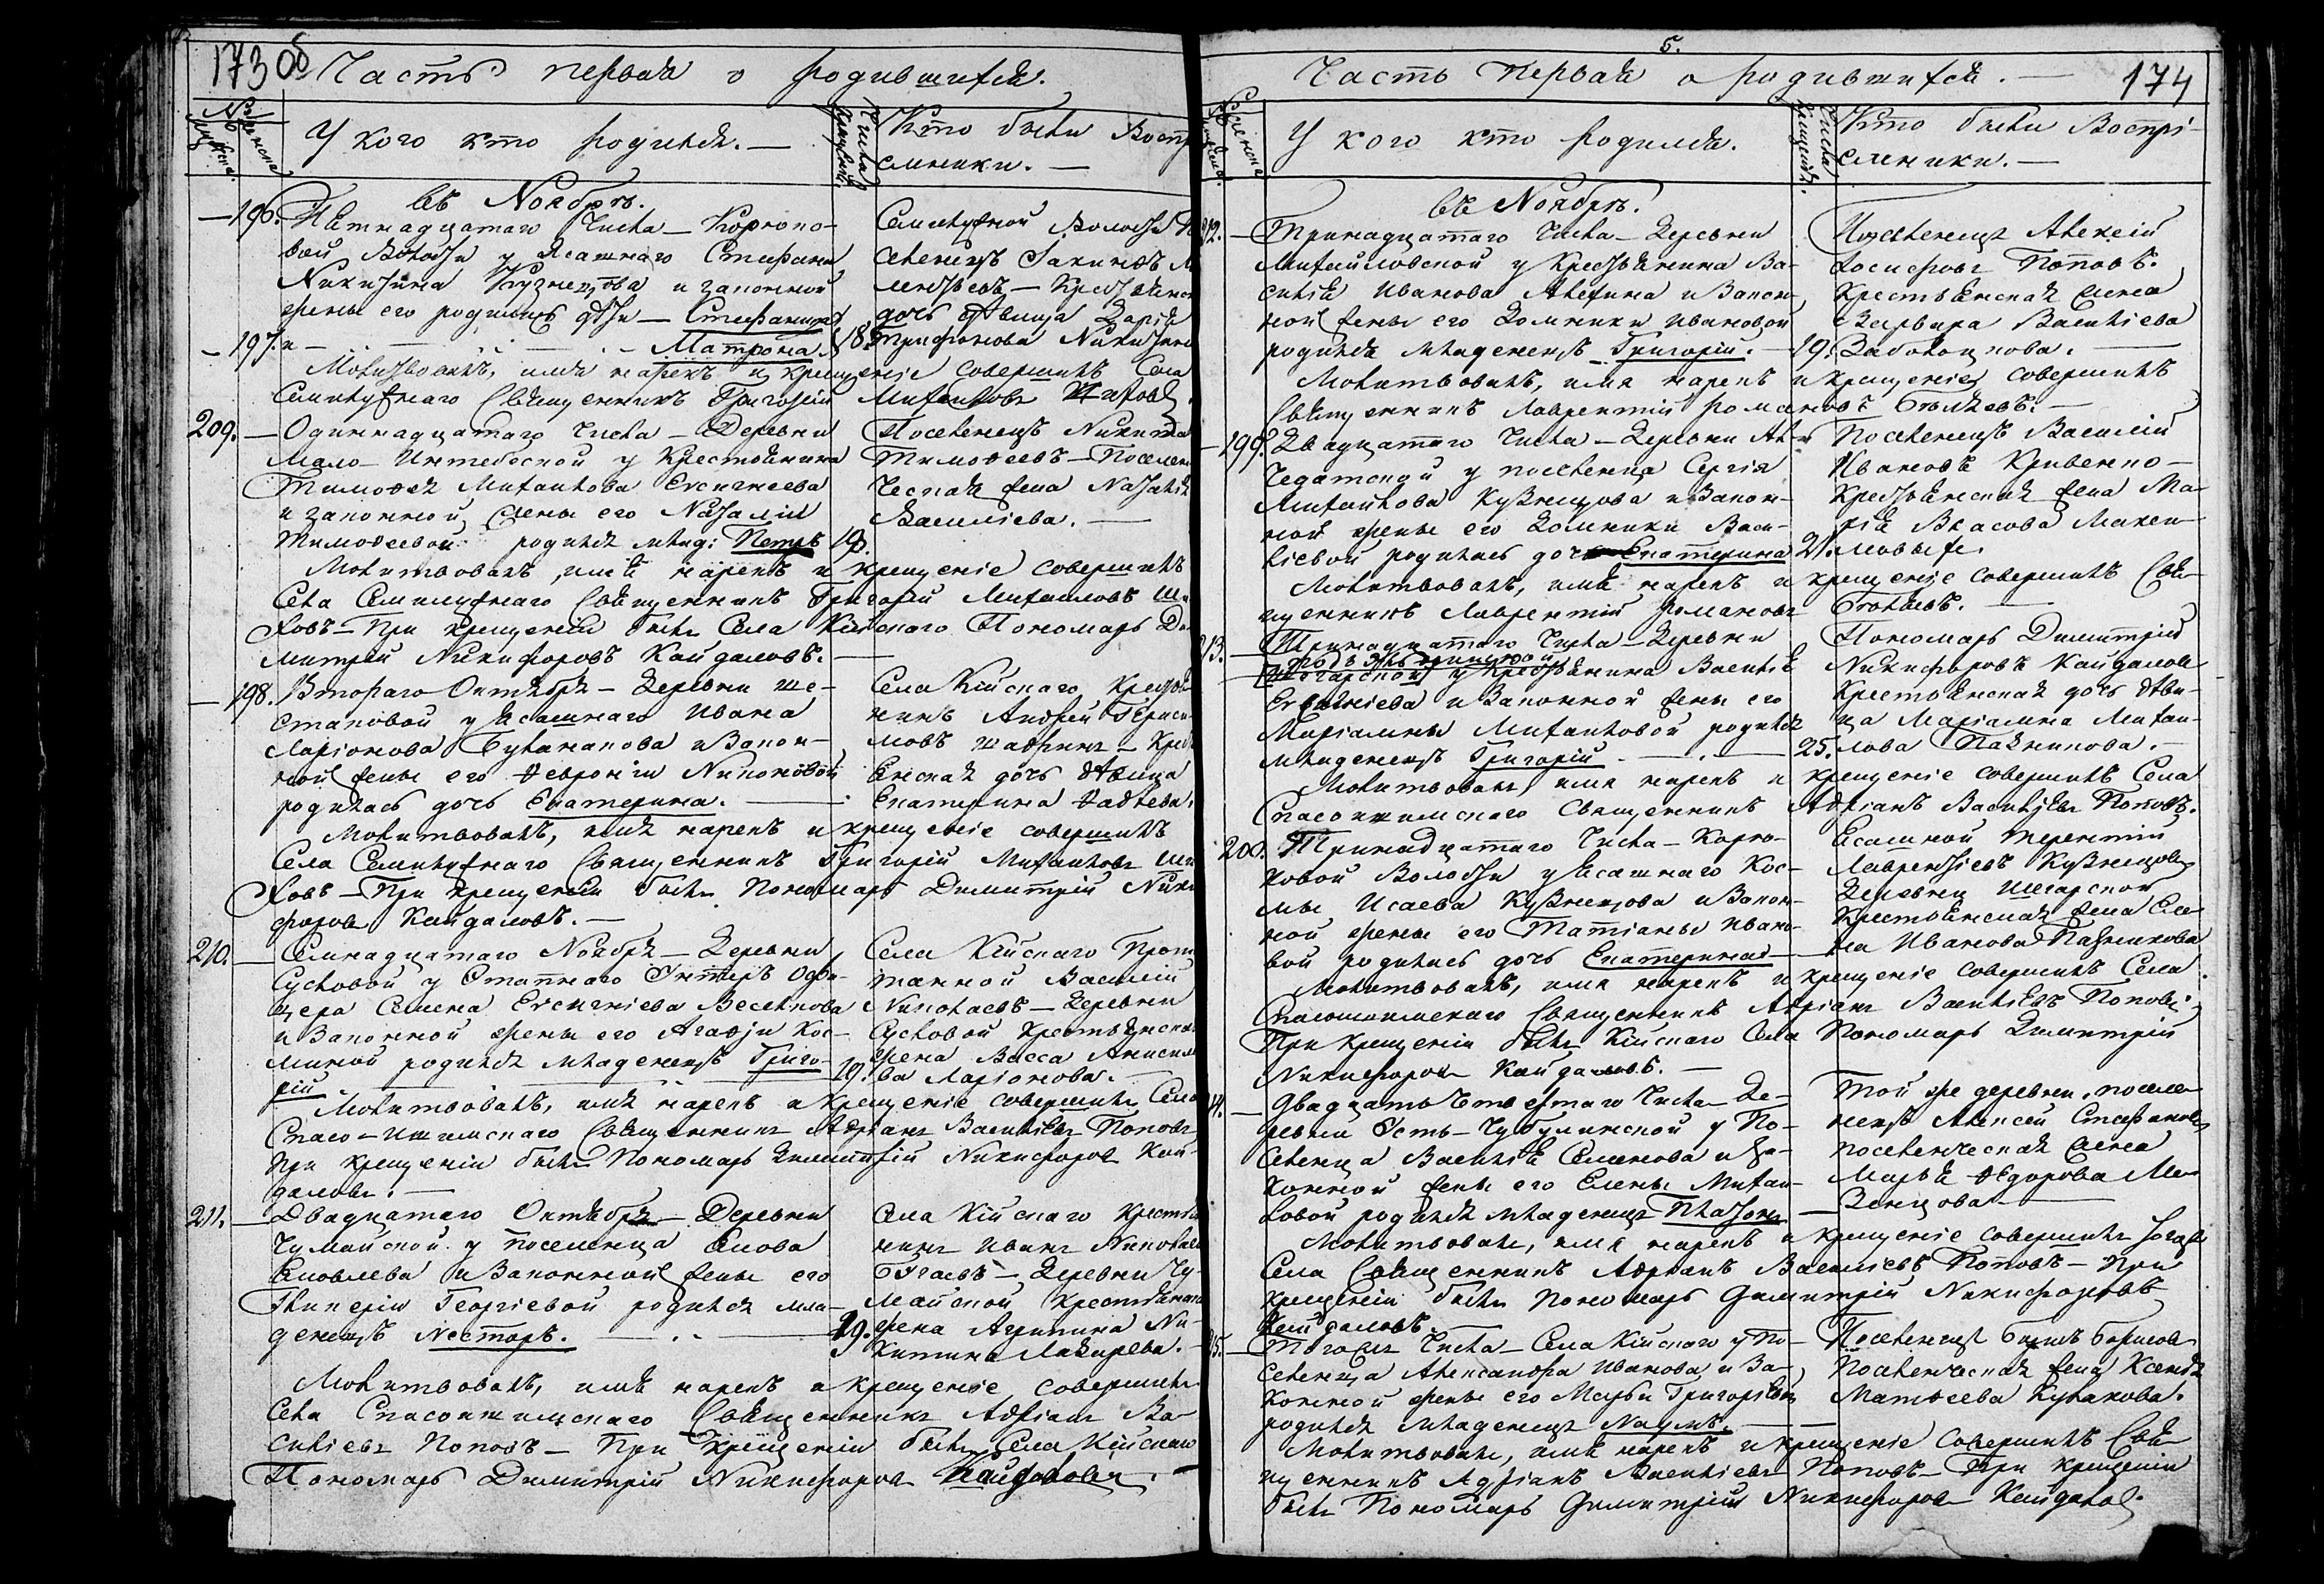 173 об
Часть первая о родившихся.
У кого кто родился. —
Кто были Воспрі-
емники. —
въ Ноябрѣ.
— 196. Пятнадцатаго Числа — Корюко-
вой Волости у Ясашнаго Стефана
Никитина Кузнецова и законной
жены его родились дѣти — Стефанида
— 197. и — Матрона 18.
Семилужной Волости По
селенецъ
— Крестьянск
дочь дѣвица Дарья
Трифонова Никитина
Молитвовалъ, имя нарекъ и крещеніе совершилъ Села
Семилужнаго Священникъ Григорій Михайловъ
209. — Одиннадцатаго Числа — Деревни
Мало-Интебеской у Крестьянина
Тимофея Михайлова Евсигнеева
и законной жены его Наталіи
Тимофеевой родился млад: Петръ 19.
Поселенецъ Никита
Тимофеевъ — Поселен
ческая жена Наталья
Василіева. —
Молитвовалъ, имя нарекъ и крещеніе совершилъ
Села Семилужнаго Священникъ Григорій Михайловъ Ши
ховъ — При крещеніи былъ Села Кійскаго Пономарь Ди
митрій Никифоровъ Кайдаловъ. —
— 198. Втораго Октября — Деревни Ше-
стаковой у Ясашнаго Ивана
Ларіонова и Закон-
ной жены его Февроніи Никоновой
родилась дочь Екатерина. —
Села Кійскаго Крестья
нинъ Андрей Гераси
мовъ — Крест
янская дочь дѣвица
Екатерина Фадѣева.
Молитвовалъ, имя нарекъ и крещеніе совершилъ
Села Семилужнаго Священникъ Григорій Михайловъ Ши
ховъ — При крещеніи былъ Пономарь Димитрій Ники
форовъ Кайдаловъ. —
210. — Семнадцатаго Ноября — Деревни
Сусловой у Етапнаго Унтеръ Офи-
цера Семена Евсигнѣева Веселкова
и Законной жены его Агафіи Кос-
миной родился младенецъ Григо-
рій 19.
Села Кійскаго
Василій
Николаевъ — Деревни
Сусловой Крестьянская
жена Васса Анисимо
ва Ларіонова.
Молитвовалъ, имя нарекъ и крещеніе совершилъ Села
Спасо-Ишимскаго Священникъ Адріанъ Василіевъ Поповъ
При крещеніи былъ Пономарь Димитрій Никифоровъ Кай-
даловъ. —
211. — Двадцатаго Октября — Деревни
Чумайской у Поселенца Якова
Яковлева и Законной жены его
Гликеріи Георгіевой родился мла-
денецъ Несторъ. — 19.
Села Кійскаго Крестья
нинъ Иванъ Николаев
Бугаевъ — Деревни Чу-
майской Крестьянская
жена Агрипина Ни-
китина Лазарева. —
Молитвовалъ, имя нарекъ и крещеніе совершилъ
Села Спасоишимскаго Священникъ Адріанъ Ва-
силіевъ Поповъ — При крещеніи былъ Села Кійскаго
Пономарь Димитрій Никифоровъ Кайдаловъ. —
5.
Часть Первая о родившихся. —
174
У кого кто родился.
Кто были Воспрі-
емники. —
въ Ноябрѣ.
212. — Тринадцатаго Числа — Деревни
Михайловской у Крестьянина Ва-
силія Иванова Алехина и Закон-
ной жены его Домники Ивановой
родился младенецъ Григорій. — 19.
Поселенецъ Алексѣй
Іосифовъ Поповъ.
Крестьянская жена
Варвара Василіева
Заболоцкова. —
Молитвовалъ, имя нарекъ и крещеніе совершилъ
Священникъ Лаврентій Романовъ Бѣляевъ. —
— 199. Двадцатаго Числа — Деревни Ал-
чедатской у поселенца Сергія
Михайлова Кузнецова и Закон-
ной жены его Домники Васи-
ліевой родилась дочь Екатерина 21.
Поселенецъ Василій
Ивановъ Кривенко —
Крестьянская жена Ма-
рія Власова
Молитвовалъ, имя нарекъ и крещеніе совершилъ Свя-
щенникъ Лаврентій Романовъ Бѣляевъ. —
213. — Тринадцатаго Числа — Деревни
у Крестьянина Василія
Евгеніева и Законной жены его
Маріамны Михайловой родился
младенецъ Григорій — 25.
Пономарь Димитрій
Никифоровъ Кайдаловъ
Крестьянская дочь дѣви-
ца Маріамна Михаи-
лова Пазникова. —
Молитвовалъ, имя нарекъ и крещеніе совершилъ Села
Спасоишимскаго Священникъ Адріанъ Василіевъ Поповъ.
200. Тринадцатаго Числа — Корю-
ковой Волости у Ясашнаго Кос-
мы Исаева Кузнецова и Закон-
ной жены его Татіаны Ивано-
вой родилась дочь Екатерина —
Ясашной Терентій
Лаврентіевъ Кузнецовъ
Деревни Шегарской
Крестьянская жена Еле-
на Иванова Пазникова
Молитвовалъ, имя нарекъ и крещеніе совершилъ Села
Спасоишимскаго Священникъ Адріанъ Василіевъ Поповъ
При Крещеніи былъ Кійскаго Села Пономарь Димитрій
Никифоровъ Кайдаловъ. —
— Двадцать Четвертаго Числа Де-
ревни Усть-Чубулинской у По-
селенца Василія Семенова и За-
конной жены его Елены Михай-
ловой родился младенецъ Платонъ —
Той же деревни поселе
нецъ Алексѣй Стефановъ
поселенческая жена
Марья Федорова Ме-
зенцова —
Молитвовалъ, имя нарекъ и крещеніе совершилъ тогожъ
Села Священникъ Адріанъ Василіевъ Поповъ — При
Крещеніи былъ Пономарь Димитрій Никифоровъ
Кайдаловъ.
— Тогожъ Числа — Села Кійскаго у По-
селенца Александра Иванова и За-
конной жены его Марьи Григорьевой
родился младенецъ Наумъ. —
Поселенецъ Борисъ Борисовъ
Поселенческая жена Ксенія
Матвеева Кулакова.
Молитвовалъ, имя нарекъ и крещеніе совершилъ Свя-
щенникъ Адріанъ Василіевъ Поповъ — При крещеніи
былъ Пономарь Димитрій Никифоровъ Кайдаловъ.